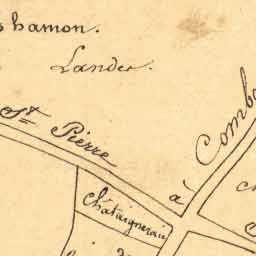 hamon.
Landes.
St Pierre
à Combo
Châtaigneraie